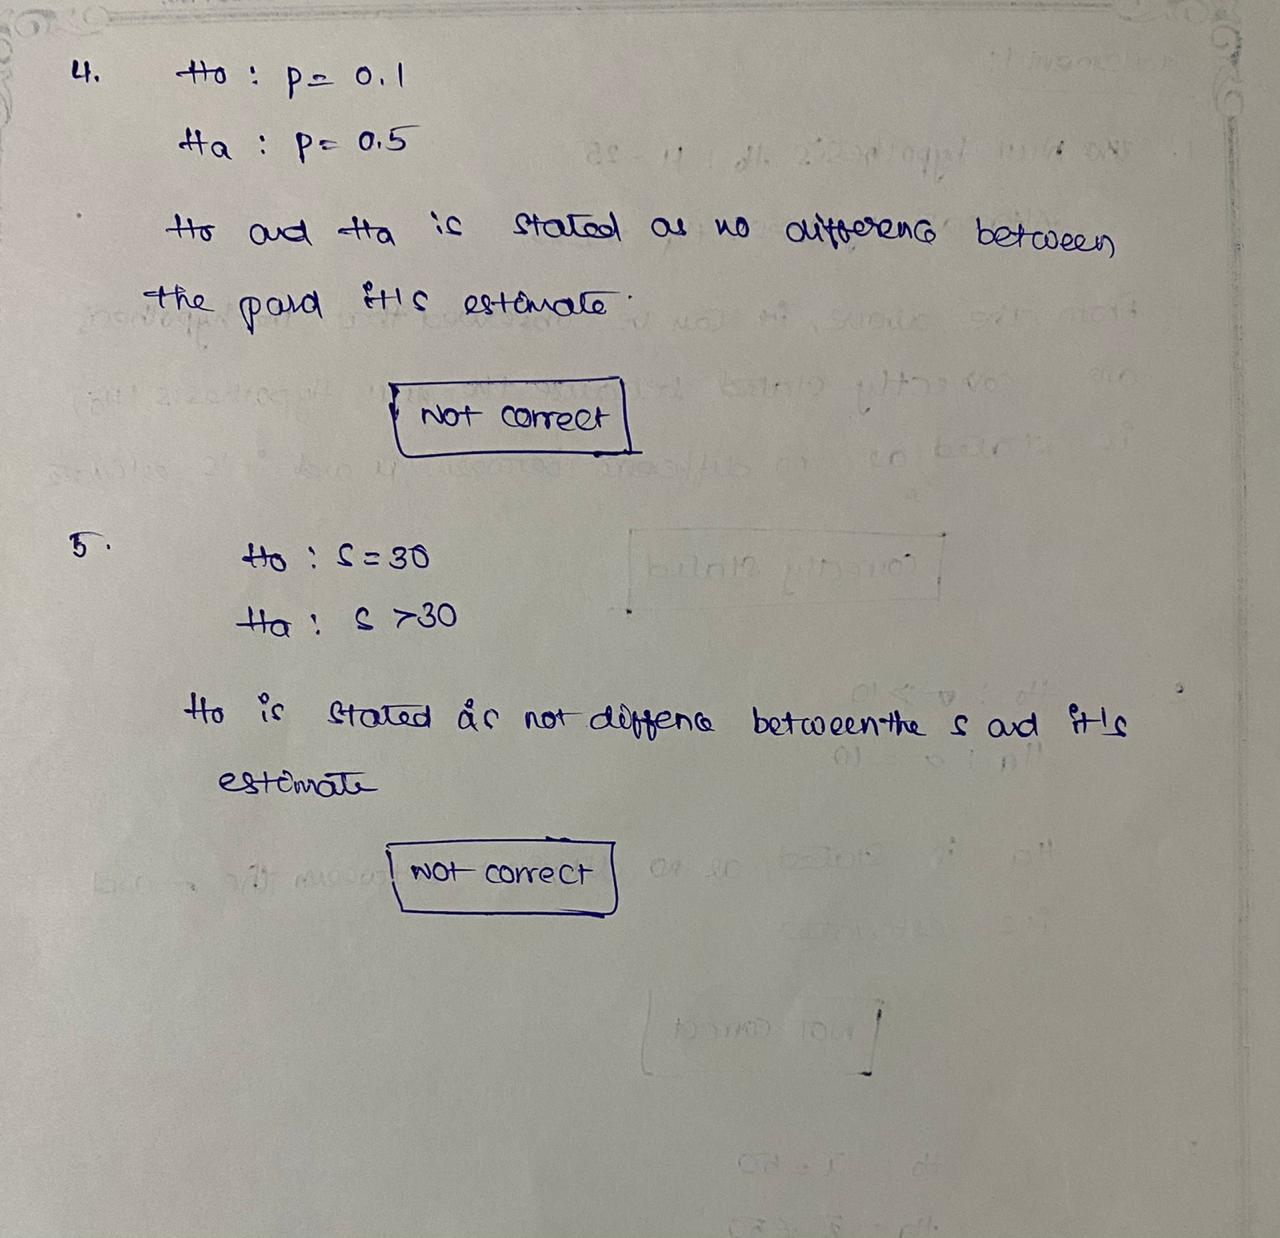 4. Ho : p = 0.1
Ha : p = 0.5
Ho and Ha is stated as no difference between
the p and it's estimate.
Not correct
5. Ho : S = 30
Ha : S >30
Ho is stated as not diffence between the s and it's
estimate
Not correct